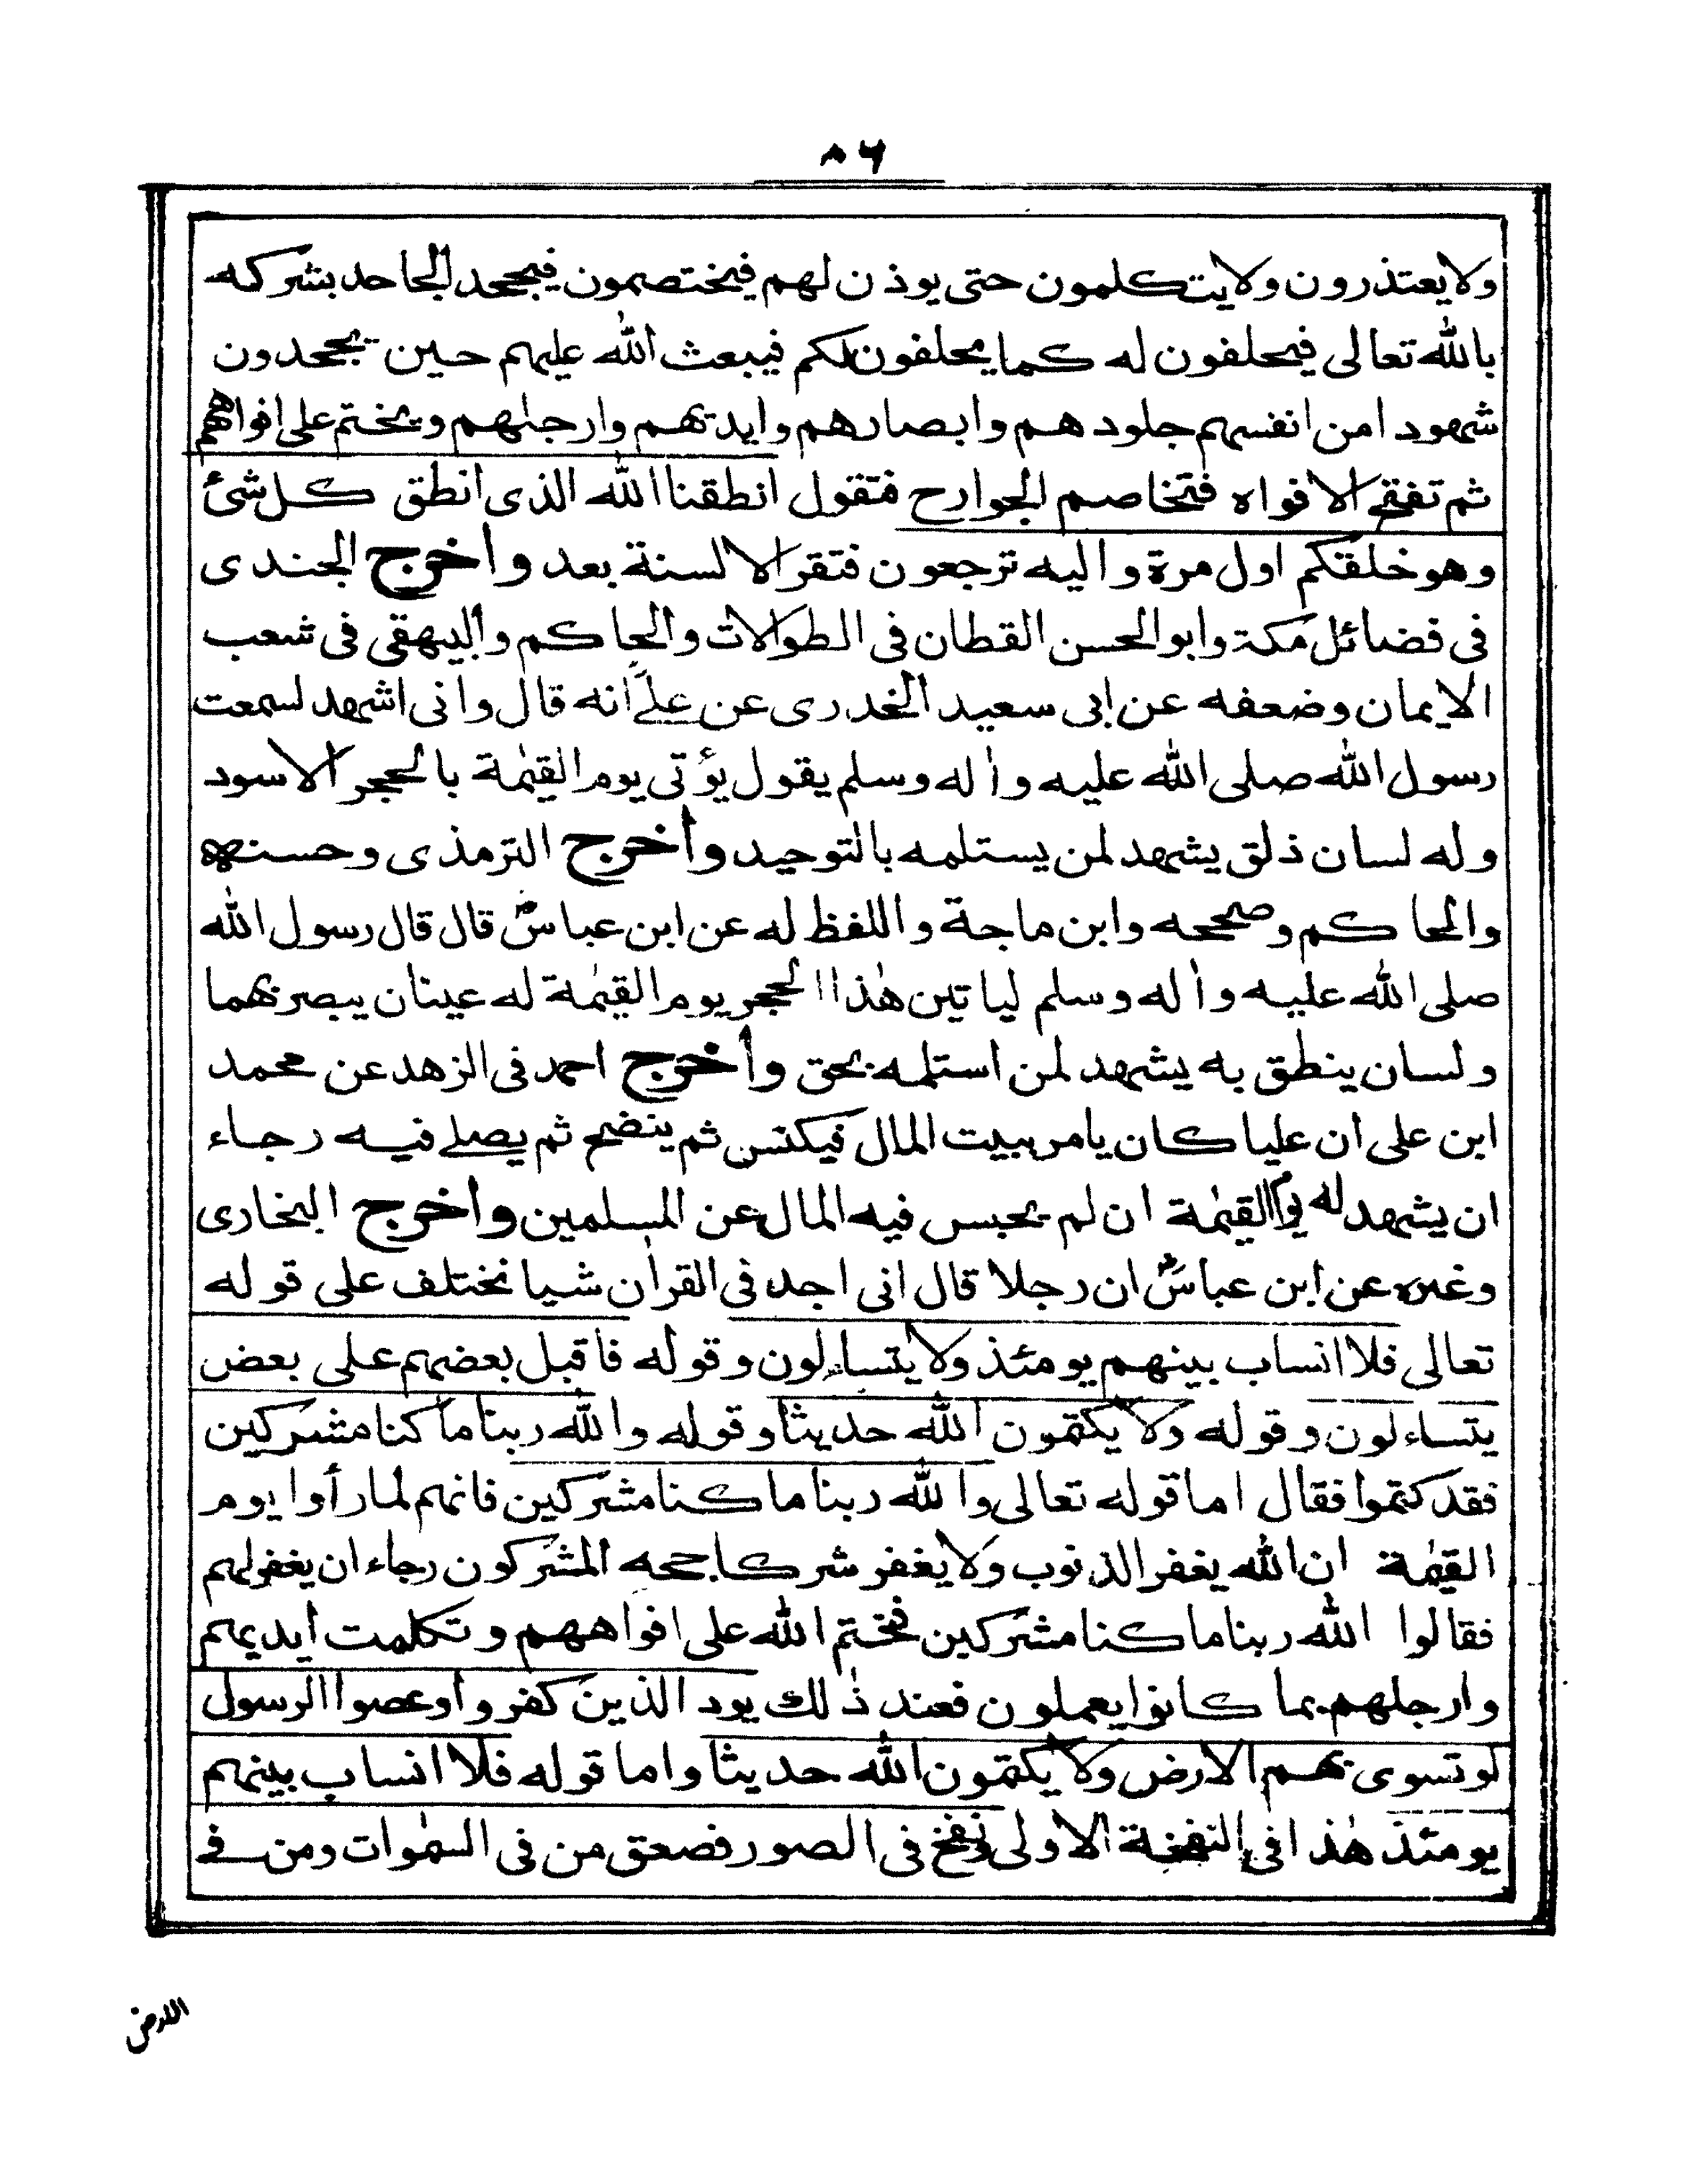 ٨٦
ولا يعتذرون ولا يتكلمون حتى يوذن لهم فيختصمون فيجحد الجاحد بشركه
بالله تعالى فيحلفون له كما يحلفون لكم فيبعث الله عليهم حين يجحدون
شهودا من انفسهم جلودهم وابصارهم وايديهم وارجلهم ويختم على افواههم
ثم تفتح الافواه فتخاصم الجوارح فتقول انطقنا الله الذى انطق كل شئ
وهو خلقكم اول مرة واليه ترجعون فتقر الالسنة بعد وأخرج الجندى
فى فضائل مكة وابو الحسن القطان فى الطوالات والحاكم والبيهقى فى شعب
الايمان وضعفه عن ابى سعيد الخدرى عن على انه قال وانى اشهد لسمعت
رسول الله صلى الله عليه وأله وسلم يقول يؤتى يوم القيٰمة بالحجر الاسود
وله لسان ذلق يشهد لمن يستلمه بالتوحيد وأخرج الترمذى وحسنه
والحاكم وصححه وابن ماجة واللفظ له عن ابن عباسؓ قال قال رسول الله
صلى الله عليه وأله وسلم لياتين هٰذا الحجر يوم القيٰمة له عينان يبصر بهما
ولسان ينطق به يشهد لمن استلمه بحق وأخرج احمد فى الزهد عن محمد
ابن على ان عليا كان يامر ببيت المال فيكنس ثم ينضح ثم يصلے فيه رجاء
ان يشهد له يوم القيٰمة ان لم يحبس فيه المال عن المسلمين وأخرج البخارى
وغيره عن ابن عباسؓ ان رجلا قال انى اجد فى القرأن شيا نختلف على قوله
تعالى فلا انساب بينهم يومئذ ولا يتساءلون وقوله فاقبل بعضهم على بعض
يتساءلون وقوله ولا يكتمون الله حديثا وقوله والله ربنا ما كنا مشركين
فقد كتموا فقال اما قوله تعالى والله ربنا ما كنا مشركين فانهم لما رأوا يوم
القيٰمة ان الله يغفر الذنوب ولا يغفر شركا جحه المشركون رجاء ان يغفر لهم
فقالوا الله ربنا ما كنا مشركين فختم الله على افواههم وتكلمت أيديهم
وارجلهم بما كانوا يعملون فعند ذٰلك يود الذين كفروا وعصوا الرسول
لو تسوى بهم الارض ولا يكتمون الله حديثا واما قوله فلا انساب بينهم
يومئذ هٰذا فى النفخة الاولى ونفخ فى الصور فصعق من فى السمٰوات ومن فے
الارض